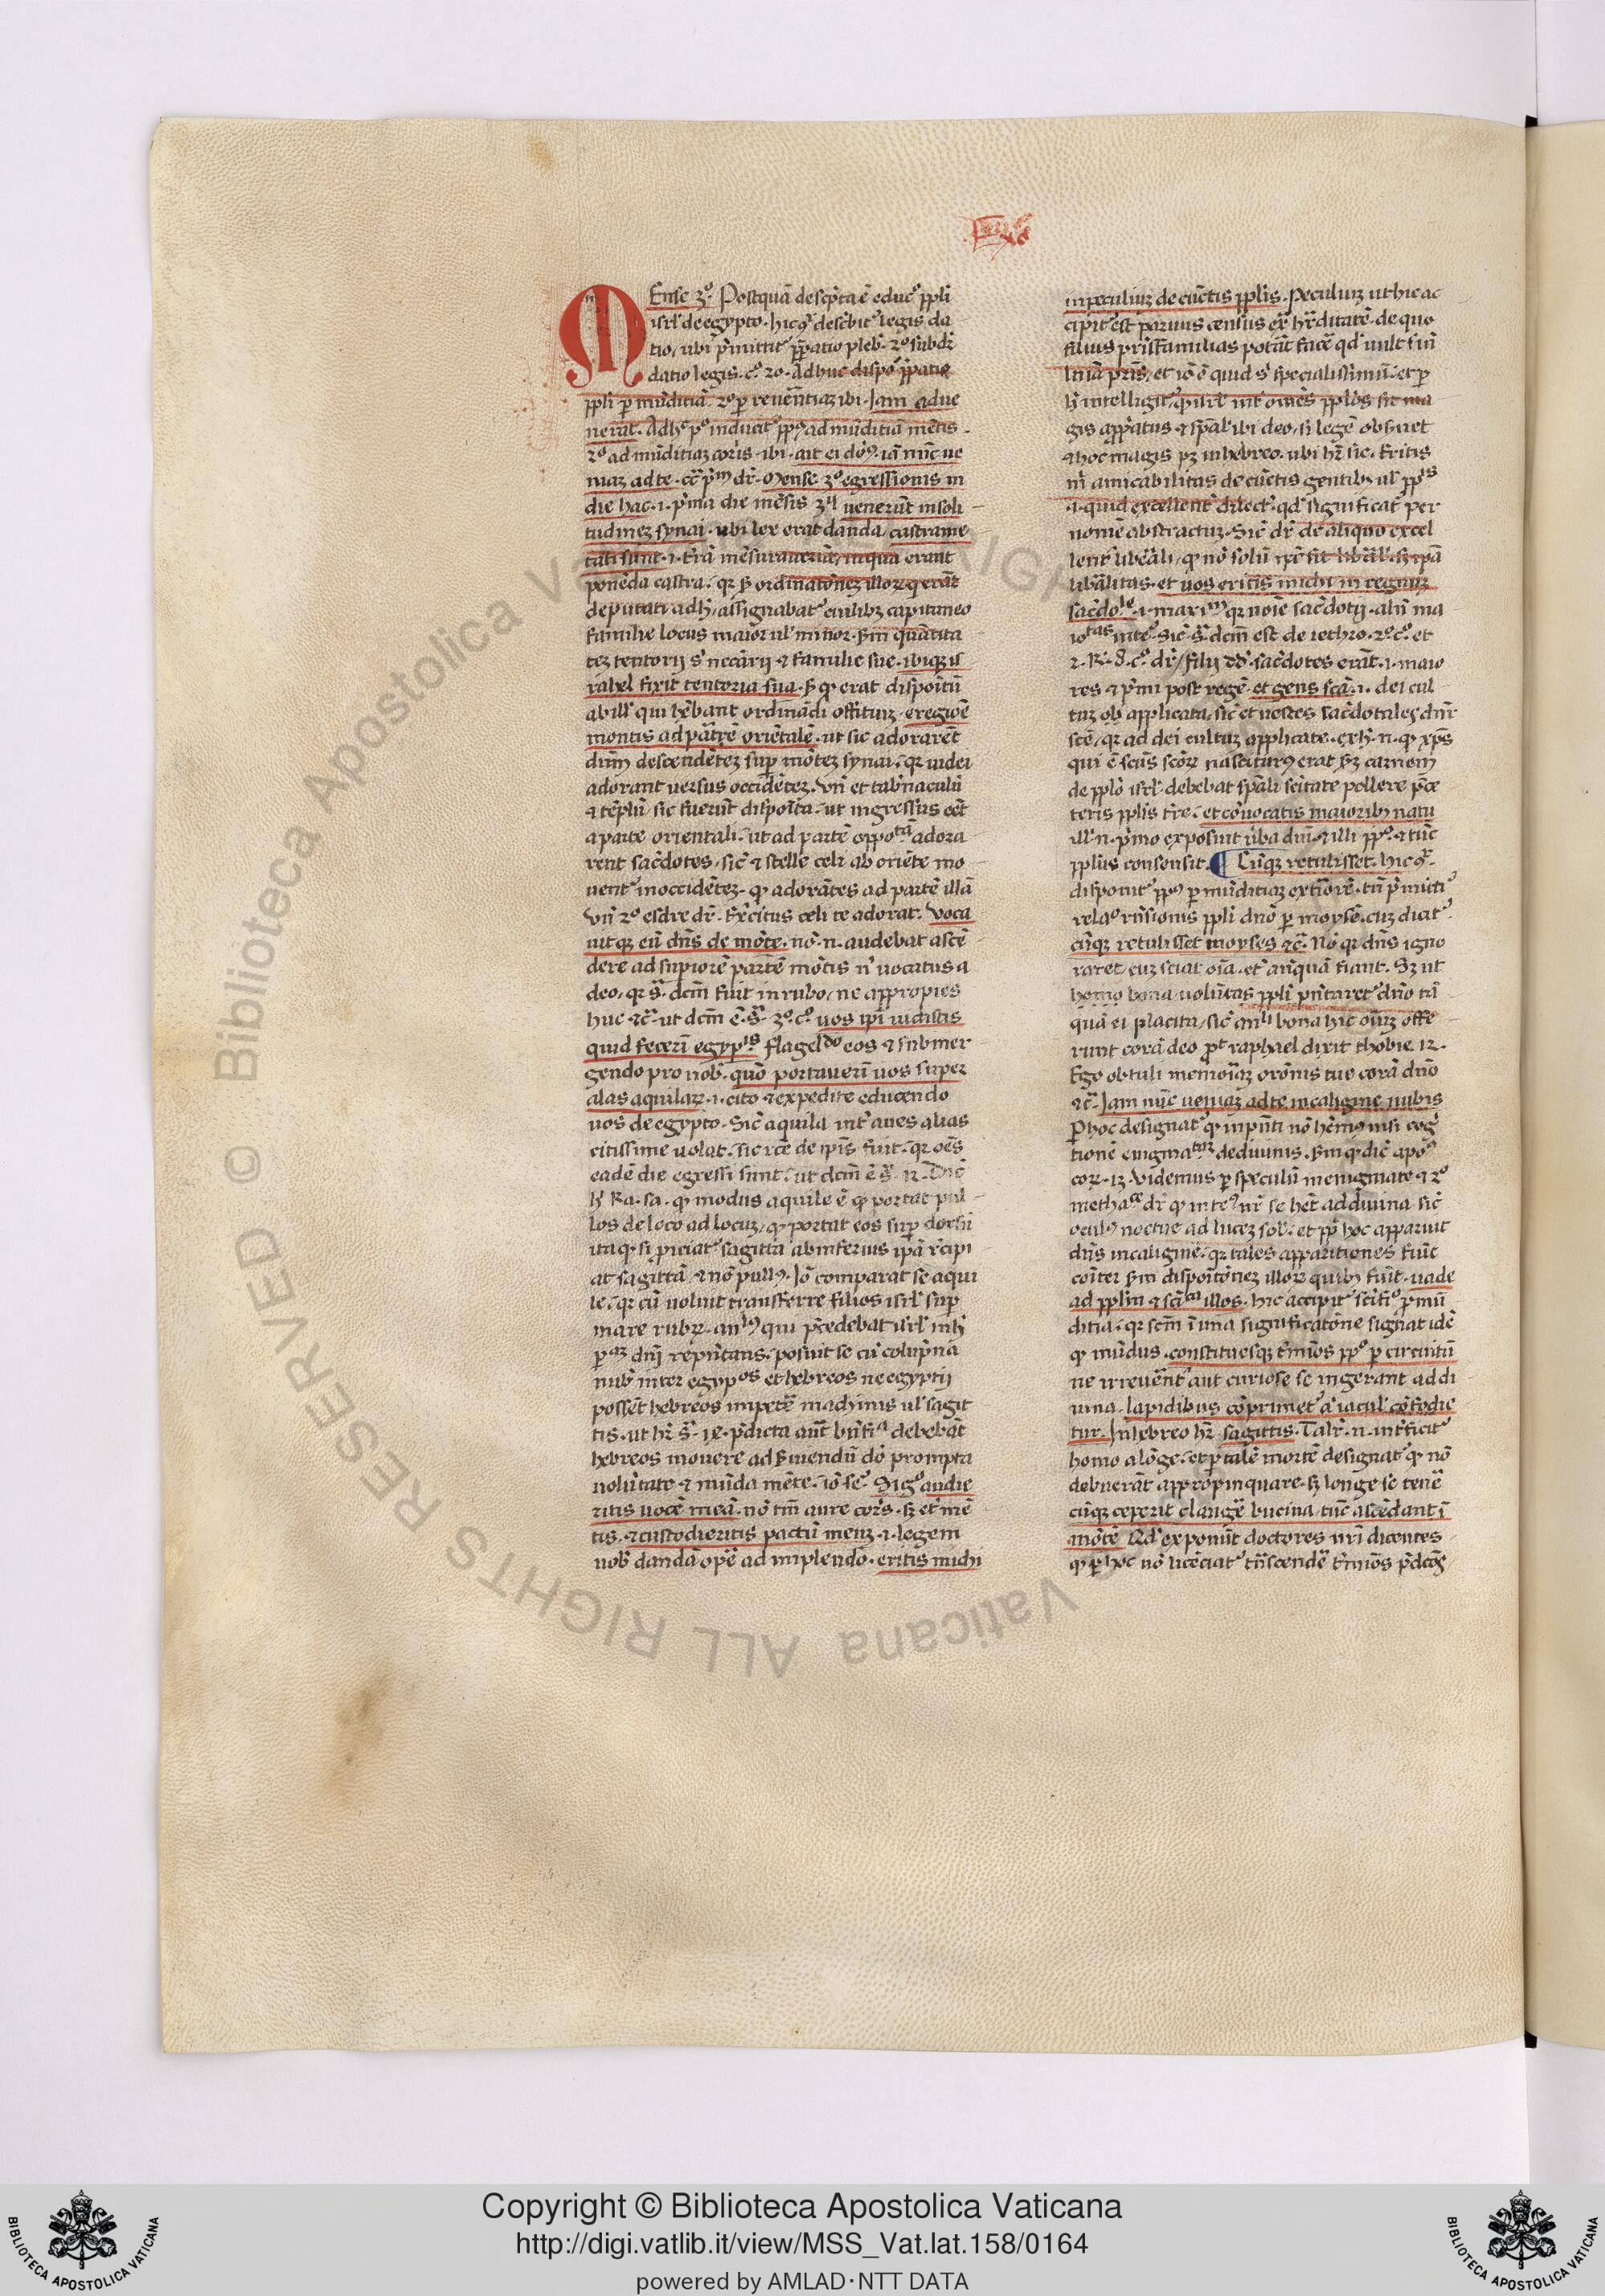 Ense 3º. Postquā descp̄ta ē educº ppl̄i
isrl̄ de egypto. hic 9ͬ describitͬ legis da
tio, ubi p̄mittitͬ p̄patio pleb. 2º subdr̄
datio legis. cº. 20. Adhuc dispōͬ p̄patio
ppl̄i ꝑ mūditiā. 2º ꝑ reuēntiaʒ ibi. Jam adue
nerat. Adhͨ pº inducitͬ pp9 ad mūditiā mētis.
2º ad mūditiaʒ corꝑis. ibi. ait ei dn̄s. iā nūc ue
niaʒ ad te. cͣ pͫ dr̄. Mense 3º egressionis in
die hac. i. pͥma die mēsis 3ij uenerūt in soli
tudineʒ synai. ubi lex erat danda. castrame
tati sunt. i. tr̄ā mēsurauerūt, in qua erant
ponēda castra.
deputati ad hͨ, assignabatͬ cuilibʒ capitaneo
familie locus maior ul̄ minor. ẜm quātita
teʒ tentorij sͥ necc̄arij ⁊ familie sue. ibiqʒ is
rahel fixit tentoria sua. qͥ erat dispoītū
ab ill̄ qui hēbant ordinādi offitiuʒ. e regiōe
montis ad pātē oriētalē. ut sic adorarēt
dūm descendēteʒ suꝑ mōteʒ synai. qꝛ iudei
adorant uersus occidēteʒ. vn̄ et tab̄naculū
⁊ tēplū, sic fuerūt dispoīta. ut ingressus eēt
a parte orientali. ut ad partē oppoͭā adora
rent sac̄dotes. sic̄ ⁊ stelle celi ab oriēte mo
uentͬ in occidētez. qͥ adorātes ad partē illā
vn̄ 2º esdre dr̄. Ex̄citus celi te adorat. Voca
uitqʒ eū dn̄s de mōte. nō. n. audebat ascē
dere ad supiorē partē mōtis nͥ uocatus a
deo, qꝛ s̄. dcm̄ fuit in rubo, ne appropies
huc ⁊c̄. ut dcm̄ ē. s̄. 3º. cº. uos ipī uidistis
quid fecerī egypͭⁱˢ. flagelͩᵒ eos ⁊ submer
gendo pro uob. quō portauerī uos super
alas aquilaꝝ. i. cito ⁊ expedite educendo
uos de egypto. Sic̄ aquila intͬ aues alias
citissime uolat. sic rc̄e de ipīs fuit. qꝛ oēs
eadē die egressi sunt. ut dcm̄ ē s̄. 12. Dic̄
hͨ Ra. sa. qͥ modus aquile ē qͥ portat pul
los de loco ad locuʒ, qͥ portat eos suꝑ dorsū
ita qͥ si piciatͬ sagitta ab inferius ipā rc̄ipi
at sagittā, ⁊ nō pull9. Jō comparat se aqui
le. qꝛ cū uoluit transferre filios isrl̄ suꝑ
mare rubꝝ. anl̄9 qui p̄cedebat isrl̄ in hͨ
dn̄j rep̄ntans. posuit se cū colūpna
nub inter egypᵒˢ et hebreos ne egyptij
possēt hebreos impetē machinis ul̄ sagit
tis. ut hr̄ s̄. 14. p̄dicta aūt bn̄fiͣ debebāt
hebreos mouere ad ẜuiendū dō prompta
uolūtate ⁊ mūda mēte. iō seͬ. Si gͦ audie
ritis uocē meā. nō tm̄ aure corꝑis. sʒ et mē
tis. ⁊ custodieritis pactū meuʒ. i. legem
uob dandā opē adimplendo. eritis michi
in peculiuʒ de cūctis ppl̄is. Peculiuʒ ut hic ac
cipitͬ est paruus census ex hr̄ditatē. de quo
filius pr̄isfamilias potāt facē qd uult sin̄
l̄nīa pr̄is, et iō ē quid sͥ specialissimū. et ꝑ
hͨ intelligitͬ, qͥ isrl̄ intͬ omēs ppl̄os sit ma
gis apparatus ⁊ spāl̄ ibi deo, si legē obẜuet
⁊ hoc magis pʒ in hebreo. ubi hr̄ sic. Eritis
m̄ amicabilitas de cūctis gentibʒ ul̄ ppl̄ˢ
.i. quid excellentͬ dilectͫ. qd significatͬ per
nomē abstractuʒ. Sic̄ dr̄ de aliquo excel
lentͬ libēāli, qͥ nō solū ipē sit libāl. sʒ ipā
libālitas. et uos eritis michi in regnuʒ
sac̄doͭˡᵉ .i. maxiͫ. qꝛ noīe sac̄dotij. alin̄ ma
ioͬᵗᵃˢ inteͬ. sic̄ s̄. dcm̄ est de iethro. 2º cº. et
2. R. 8. cº. dr̄, filij dd. sac̄dotes erāt. i. maio
res ⁊ pͥmi post regē. et gens scā. i. dei cul
tuʒ ob applicata, sic̄ et uestes sac̄dotales dn̄r
scē, qꝛ ad dei cultuʒ applicate. ex hͨ. n. qͥ xp̄s
qui ē scūs scōꝝ nasciturus erat ẜʒ carnem
de ppl̄o isrl̄. debebat spāli scītate pollere p̄ce
teris ppl̄is tr̄e. et cōuocatis maiorib natu
ill̄. n. pͥmo exposuit uͬba dn̄i. ⁊ illi ppº. ⁊ tūc
ppl̄us consensit. ¶ Cūqʒ retulisset. hic 9ͬ.
disponitͬ pp9 ꝑ mūditiaʒ extiorē. tn̄ p̄mittiͬ
relaº rn̄sionis ppl̄i dn̄o ꝑ moysē. cuʒ dicitͬ.
cūqʒ retulisset moyses ⁊c̄. Nō qꝛ dn̄s igno
raret, cuʒ sciat oīa. et āncquā fiant. Sʒ ut
homo bona uolūtas ppl̄i pn̄taretͬ dn̄o tā
quā ei placita, sic̄ an̄li bona hic oīūʒ offe
runt corā deo. ꝓͭ raphael dixit thobie 12.
Ego obtuli memoīaʒ orōnis tue corā dn̄o
⁊c̄. Jam nūc ueniaʒ ad te in caligine nubis
ꝑ hoc designatͬ qͥ in pn̄ti nō hēmus nisi cogͥ
tionē enigmaͭᵃᵐ de diuinis. ẜm qͥ dic̄ apoͦˢ
cor. 13. Videmus ꝑ speculū in enigmate. ⁊ 2º
methaͣ dr̄ qͥ inteͬ9 nr̄ se hēt ad diuina sic̄
ocul9 noctue ad luceʒ sol. et ppͬ hoc apparuit
dn̄s in caligine. qꝛ tales apparitiones fiūt
coīter ẜm dispoītōneʒ illoꝝ quibʒ fiūt. uade
ad ppl̄m ⁊ scīͨᵃ illos. hic accipitͬ scīfiº ꝑ mū
ditia. qꝛ scm̄ ī una significatōne signat idē
qͥ mūdus. constituesqʒ tͬmīos ppº ꝑ circuitū
ne irreuēntͬ aut curiose se ingerant ad di
uina. lapidibus opprimetͬ aͬ iacul cōfodie
tur. In hebreo hr̄ sagittis. Talr̄. n. intͬficitͬ
homo a lōge. et ꝑ talē mortē designatͬ qͥ nō
debuerāt appropinquare. sʒ longe se tenē
cūqʒ ceperit clangē bucina. tūc ascēdant ī
mōtē. Qd exponūt doctores nr̄i dicentes
qͥ ꝑ hoc nō licēciatͬ tn̄scendē tͬmīos p̄dcōs
Copyright © Biblioteca Apostolica Vaticana
http://digi.vatlib.it/view/MSS_Vat.lat.158/0164
powered by AMLAD·NTT DATA
BIBLIOTECA APOSTOLICA VATICANA
BIBLIOTECA APOSTOLICA VATICANA
© Biblioteca Apostolica Vaticana ALL RIGHTS RESERVED